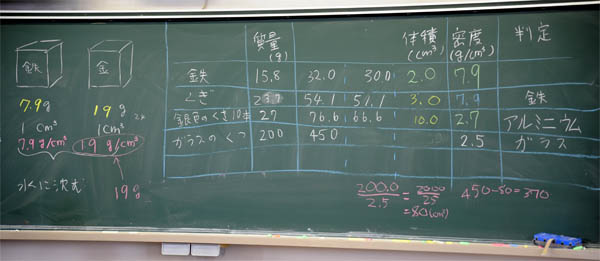 鉄
金
7.9g
19g
1cm³
1cm³
7.9g/cm³
19g/cm³
水に沈む
19g
質量(g) 体積(cm³) 密度(g/cm³) 判定
鉄 15.8 32.0 30.0 2.0 7.9
くぎ 54.1 51.1 3.0 7.9 鉄
銀色のくぎ10本 27 76.6 66.6 10.0 2.7 アルミニウム
ガラスのくつ 200 450 2.5 ガラス
200.0/2.5 = 2000/25
=80(cm³)
450-80=370